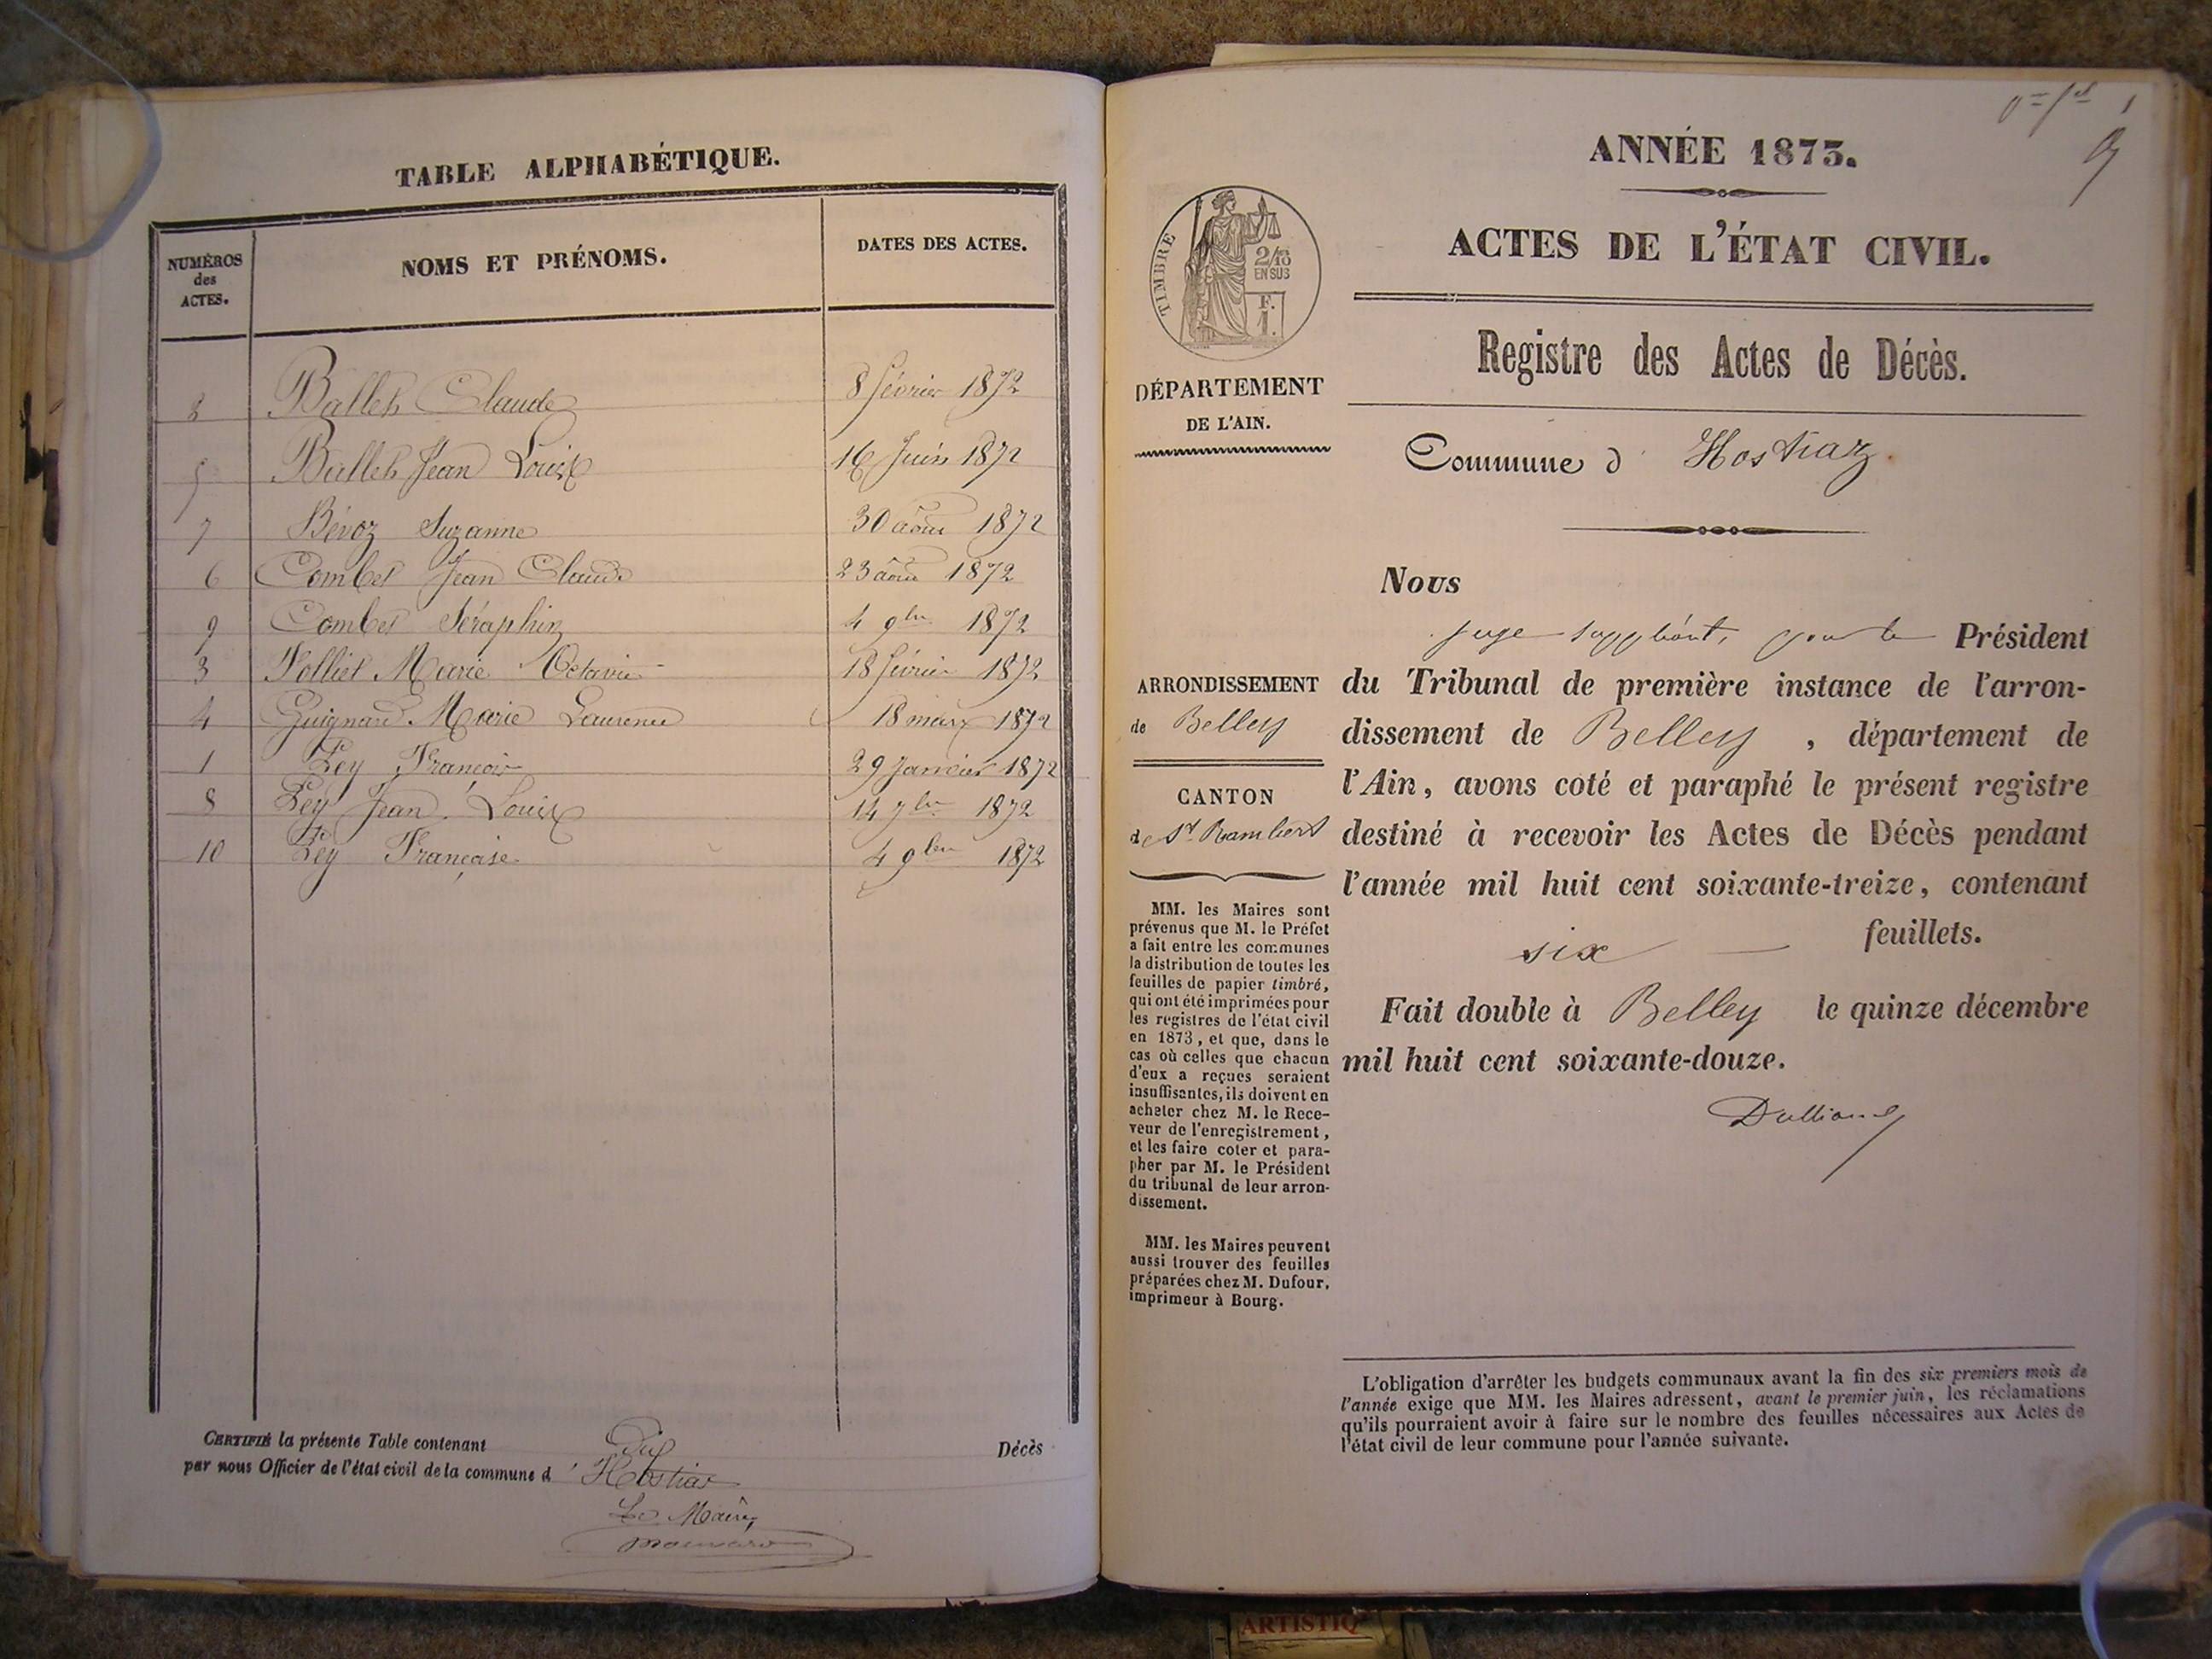 TABLE ALPHABÉTIQUE.
NUMÉROS
des
ACTES.
NOMS ET PRÉNOMS.
DATES DES ACTES.
Claude 8 février 1872
5 Jean Louis 16 Juin 1872
7 Bévoz Suzanne 30 août 1872
6 Combet Jean Claude 23 août 1872
9 Combet Séraphin 4 9bre 1872
3 Folliet Marie Octavie 18 février 1872
4 Guignard Marie Laurence 18 mars 1872
1 Ley François 29 Janvier 1872
8 Ley Jean Louis 14 7bre 1872
10 Ley Française 4 9bre 1872
CERTIFIÉ la présente Table contenant Dix Décès
par nous Officier de l'état civil de la commune d'Hostiaz
Le Maire,
ANNÉE 1873.
ACTES DE L'ÉTAT CIVIL.
TIMBRE
2/10
EN SUS
F.
1.
Registre des Actes de Décès.
DÉPARTEMENT
DE L'AIN.
Commune d' Hostiaz.
Nous
juge suppléant, pour le Président
du Tribunal de première instance de l'arron-
dissement de Belley, département de
l'Ain, avons coté et paraphé le présent registre
destiné à recevoir les Actes de Décès pendant
l'année mil huit cent soixante-treize, contenant
six feuillets.
Fait double à Belley le quinze décembre
mil huit cent soixante-douze.
ARRONDISSEMENT
de Belley
CANTON
de St Rambert
MM. les Maires sont
prévenus que M. le Préfet
a fait entre les communes
la distribution de toutes les
feuilles de papier timbré,
qui ont été imprimées pour
les registres de l'état civil
en 1873, et que, dans le
cas où celles que chacun
d'eux a reçues seraient
insuffisantes, ils doivent en
acheter chez M. le Rece-
veur de l'enregistrement,
et les faire coter et para-
pher par M. le Président
du tribunal de leur arron-
dissement.
MM. les Maires peuvent
aussi trouver des feuilles
préparées chez M. Dufour,
imprimeur à Bourg.
L'obligation d'arrêter les budgets communaux avant la fin des six premiers mois de
l'année exige que MM. les Maires adressent, avant le premier juin, les réclamations
qu'ils pourraient avoir à faire sur le nombre des feuilles nécessaires aux Actes de
l'état civil de leur commune pour l'année suivante.
ARTISTIQ